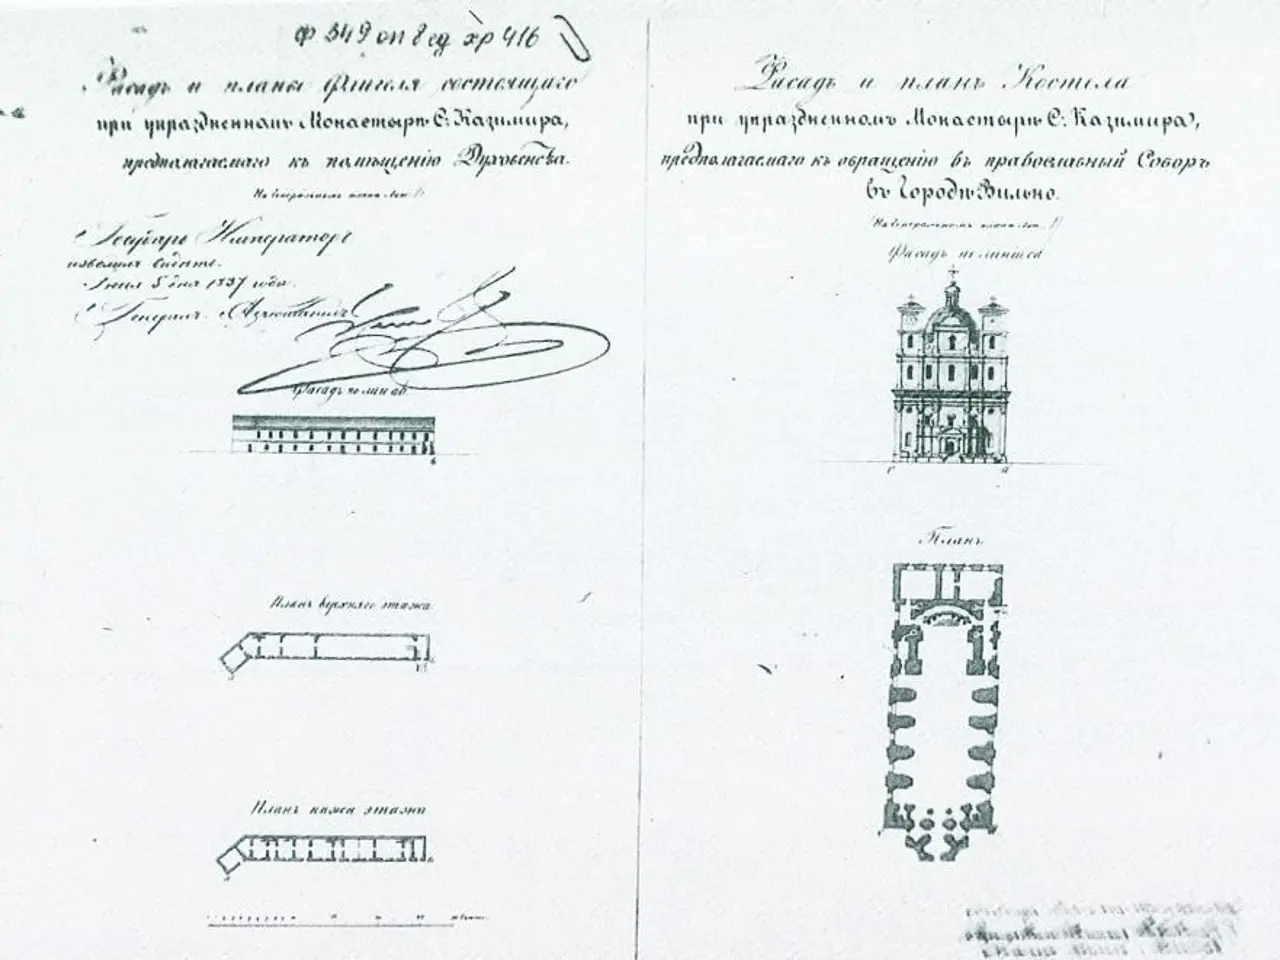 ф 349 оп 8 ед хр 416
Фасадъ и планы Флигеля состоящаго
при упраздненномъ Монастырѣ С. Казимира,
предполагаемаго къ помѣщенію Духовенства.
На Генеральномъ планѣ Лит.
Государь Императоръ
изволилъ видѣть.
Іюля 5 дня 1837 года.
Генералъ-Адъютантъ
Фасадъ по линіи ав.
в
Планъ верхняго этажа.
Планъ нижн этажа
Фасадъ и планъ Костела
при упраздненномъ Монастырѣ С. Казимира,
предполагаемаго къ обращенію въ православный Соборъ
въ Городѣ Вильно.
На Генеральномъ планѣ Лит.
Фасадъ по линіи са
с а
Планъ.